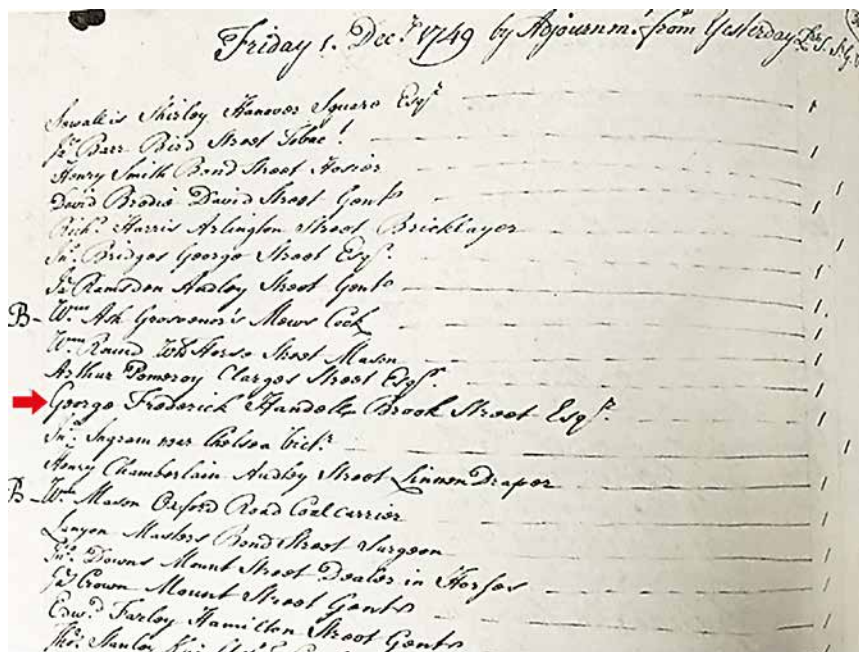 Friday 1. Decr. 1749 by Adjournmt. from Yesterday
Sewallis Shirley Hanover Square Esqr.
Ja Barr Bird Street
Henry Smith Bond Street Hosier
David Brodie David Street Gent
Richd. Harris Arlington Street Bricklayer
Jno. Bridges George Street Esqr.
Ja Ramsden Audley Street Gent
B- Wm. Ash Grosvenor's Mews Cook
Wm Round Wt Horse Street Mason
Arthur Pomeroy Clarges Street Esqr.
George Frederick Handell Brook Street Esqr.
Jno. Ingram near Chelsea Vict.
Henry Chamberlain Audley Street Linnen Draper
B- Wm Mason Oxford Road Coal Carrier
Lanyon Masters Bond Street Surgeon
Jno. Downs Mount Street Dealer in Horses
Crown Mount Street Gent
Edwd Farley Hamilton Street Gent
Thos. Stanley